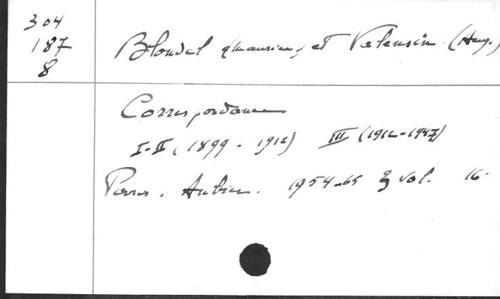 304
187
8
Blondel (Maurice) et Valensin (Aug.)
Correspondance
I-II (1899 - 1912) III (1912-1947)
Paris. Aubier. 1957-65 3 vol. 16.